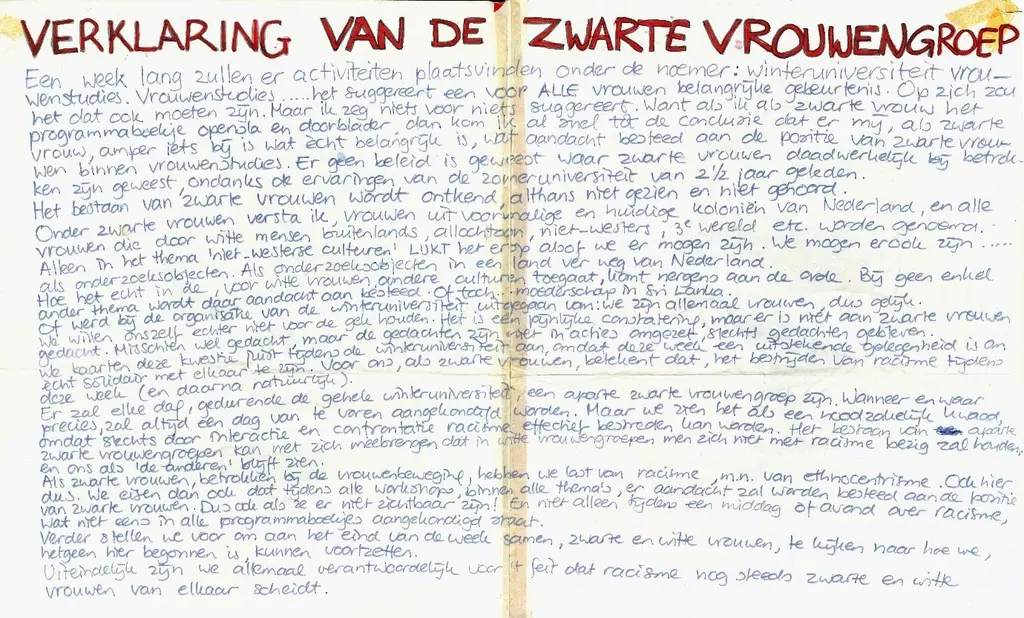 VERKLARING VAN DE ZWARTE VROUWENGROEP
Een week lang zullen er activiteiten plaatsvinden onder de noemer: winteruniversiteit vrou-
wenstudies. Vrouwenstudies.....het suggereert een voor ALLE vrouwen belangrijke gebeurtenis. Op zich zou
het dat ook moeten zijn. Maar ik zeg niets voor niets suggereert. Want als ik als zwarte vrouw het
programmaboekje opensla en doorblader, dan kom ik al snel tot de conclusie dat er mij, als zwarte
vrouw, amper iets bij is wat echt belangrijk is, wat aandacht besteed aan de positie van zwarte vrou-
wen binnen vrouwenstudies. Er geen beleid is geweest waar zwarte vrouwen daadwerkelijk bij betrok-
ken zijn geweest, ondanks de ervaringen van de zomeruniversiteit van 2½ jaar geleden.
Het bestaan van zwarte vrouwen wordt ontkend, althans niet gezien en niet gehoord.
Onder zwarte vrouwen versta ik, vrouwen uit voormalige en huidige koloniën van Nederland, en alle
vrouwen die door witte mensen buitenlands, allochtoon, niet-westers, 3e wereld etc. worden genoemd.
Alleen in het thema 'niet-westerse culturen' LIJKT het erop alsof we er mogen zijn. We mogen er ook zijn .....
als onderzoeksobjecten. Als onderzoeksobjecten in een land ver weg van Nederland.
Hoe het echt in de, voor witte vrouwen, andere culturen toegaat, komt nergens aan de orde. Bij geen enkel
ander thema wordt daar aandacht aan besteed. Of toch... moederschap in Sri Lanka.
Of werd bij de organisatie van de winteruniversiteit uitgegaan van: we zijn allemaal vrouwen, dus gelijk.
We willen onszelf echter niet voor de gek houden. Het is een pijnlijke constatering, maar er is niet aan zwarte vrouwen
gedacht. Misschien wel gedacht, maar de gedachten zijn niet in acties omgezet, slechts gedachten gebleven.
We kaarten deze kwestie juist tijdens de winteruniversiteit aan, omdat deze week een uitstekende gelegenheid is om
echt solidair met elkaar te zijn. Voor ons, als zwarte vrouwen, betekent dat, het bestrijden van racisme tijdens
deze week (en daarna natuurlijk).
Er zal elke dag, gedurende de gehele winteruniversiteit, een aparte zwarte vrouwengroep zijn. Wanneer en waar
precies, zal altijd een dag van te voren aangekondigd worden. Maar we zien het als een noodzakelijk kwaad,
omdat slechts door interactie en confrontatie racisme effectief bestreden kan worden. Het bestaan van aparte
zwarte vrouwengroepen kan met zich meebrengen dat in witte vrouwengroepen men zich niet met racisme bezig zal houden,
en ons als 'de anderen' blijft zien.
Als zwarte vrouwen, betrokken bij de vrouwenbeweging, hebben we last van racisme, m.n. van ethnocentrisme. Ook hier
dus. We eisen dan ook dat tijdens alle workshops, binnen alle thema's, er aandacht zal worden besteed aan de positie
van zwarte vrouwen. Dus ook als ze er niet zichtbaar zijn! En niet alleen tijdens een middag of avond over racisme,
wat niet eens in alle programmaboekjes aangekondigd staat.
Verder stellen we voor om aan het eind van de week samen, zwarte en witte vrouwen, te kijken naar hoe we,
hetgeen hier begonnen is, kunnen voortzetten.
Uiteindelijk zijn we allemaal verantwoordelijk voor 't feit dat racisme nog steeds zwarte en witte
vrouwen van elkaar scheidt.